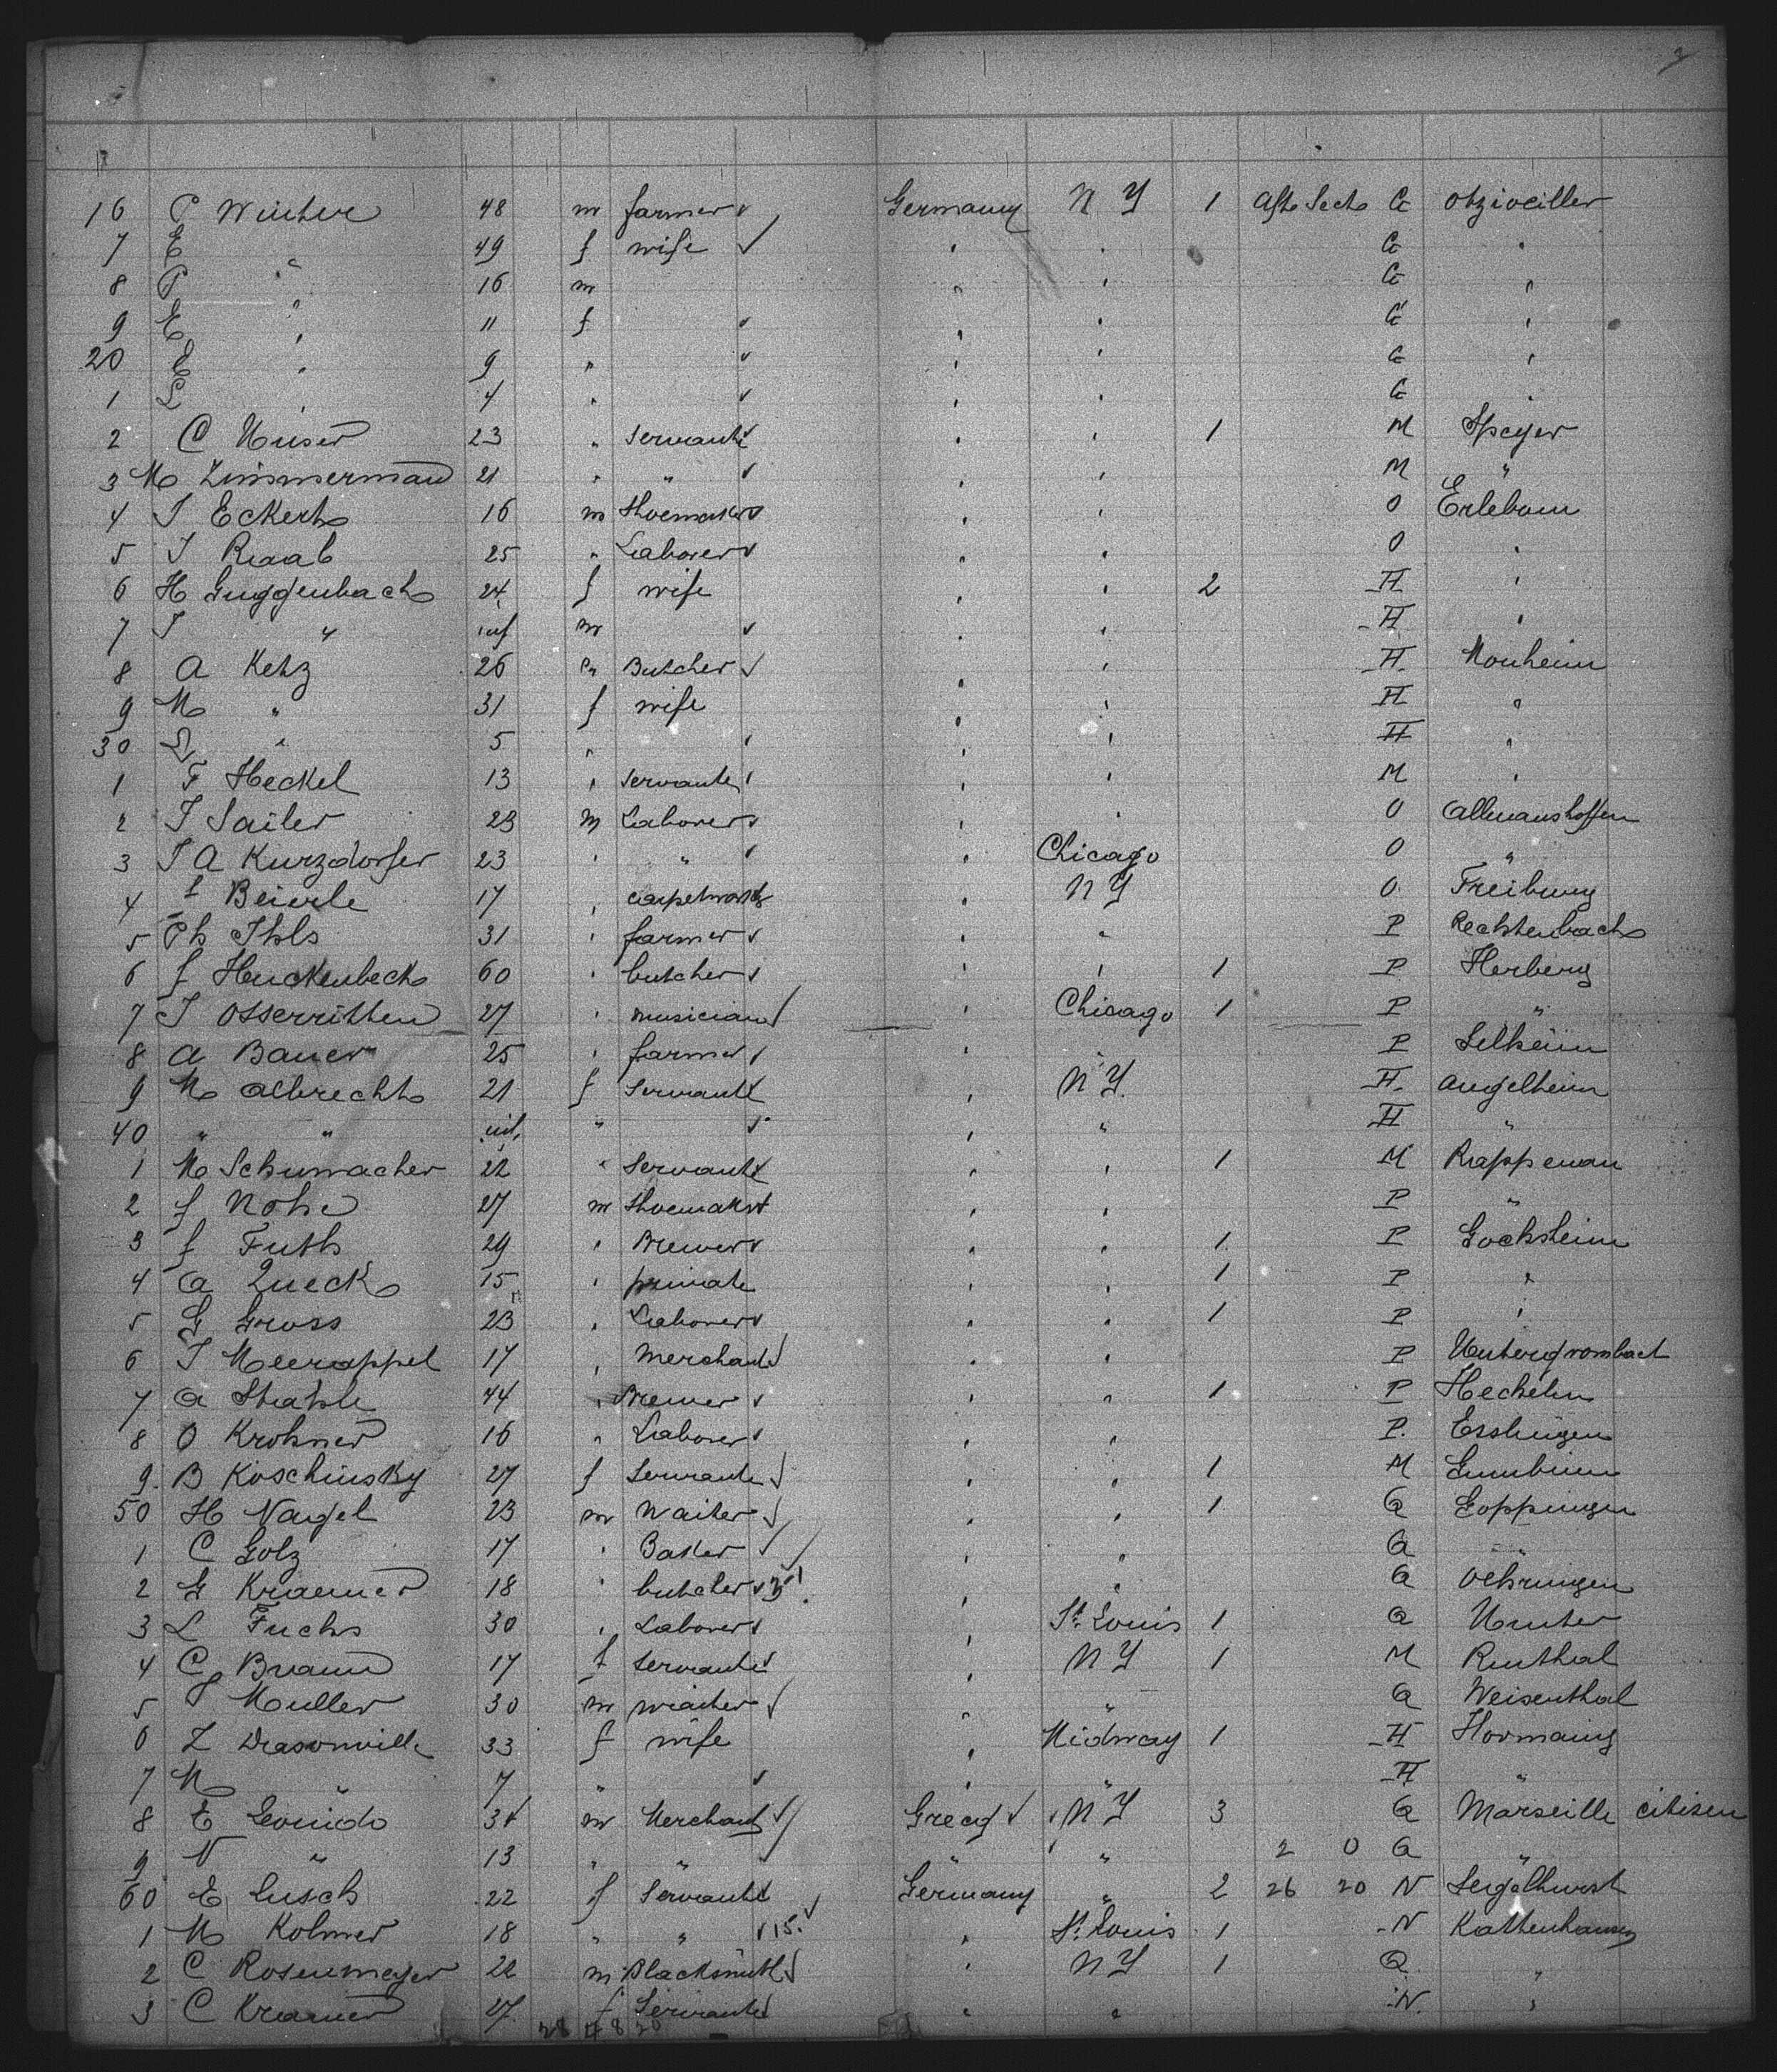 16 P Winter 48 m farmer Germany N Y 1 Aft Sect G
7 E " 49 f wife " " G "
8 P " 16 m " " G "
9 E " 11 f " " G "
20 E " 9 " " " G "
1 L " 4 " " " G "
2 C Unser 23 " servant " " 1 M Speyer
3 M Zimmermann 21 " " " " M "
4 J Eckert 16 m Shoemaker " " O Erleborn
5 J Raab 25 " Laborer " " O "
6 H Guggenbach 24 f wife " " 2 H "
7 J " inf m " " H "
8 A Ketz 26 " Butcher " " H Monheim
9 M " 31 f wife " " H "
30 L " 5 " " " H "
1 F Heckel 13 " servant " " M "
2 J Sailer 23 m Laborer " " O Allmanshoffen
3 J A Kurzdorfer 23 " " " Chicago O "
4 f Beierle 17 " " N Y O Freiburg
5 Ph Ihls 31 " farmer " " P Rechtenbach
6 f Huckenbeck 60 " butcher " " 1 P Herberg
7 J Osserritten 27 " musician " Chicago 1 P "
8 A Bauer 25 " farmer " " P Selheim
9 M Albrecht 21 f Servant " N Y. H. Angelheim
40 " " inf " " " H "
1 M Schumacher 22 " Servant " " 1 M Rappenau
2 f Nohe 27 m Shoemaker " " P "
3 f Futh 29 " Brewer " " 1 P Gochsheim
4 A Queck 15 " private " " 1 P "
5 G Gross 23 " Laborer " " 1 P "
6 J Meerappel 17 " Merchant " " P Untergrombach
7 A Strahle 44 " Brewer " " 1 P Hecheln
8 O Krohner 16 " Laborer " " P. Esslingen
9. B Koschinsky 27 f Servant " " 1 M
50 H Nagel 23 m Waiter " " 1 Q Goppingen
1 C Golz 17 " Baker " " Q "
2 G Kraemer 18 " butcher " " Q Oehringen
3 L Fuchs 30 " Laborer " St. Louis 1 Q Unter
4 C Braun 17 f Servant " N Y 1 M Rinthal
5 J Muller 30 m waiter " " Q Weisenthal
6 Z Drasonville 33 f wife " Midway 1 H Hormaing
7 M " 7 " " " H "
8 E Leonido 34 m Merchant Grecy N Y 3 Q Marseille citisen
9 N " 13 " " " " 2 0 Q "
60 E Lusch 22 f Servant Germany " 2 26 20 N Legelhurst
1 M Kolmer 18 " " 15. " St. Louis 1 N Kattenhausen
2 C Rosenmeyer 22 m Blacksmith " N Y 1 Q "
3 C Kramer 27 f Servant " " N. "
28 8 20